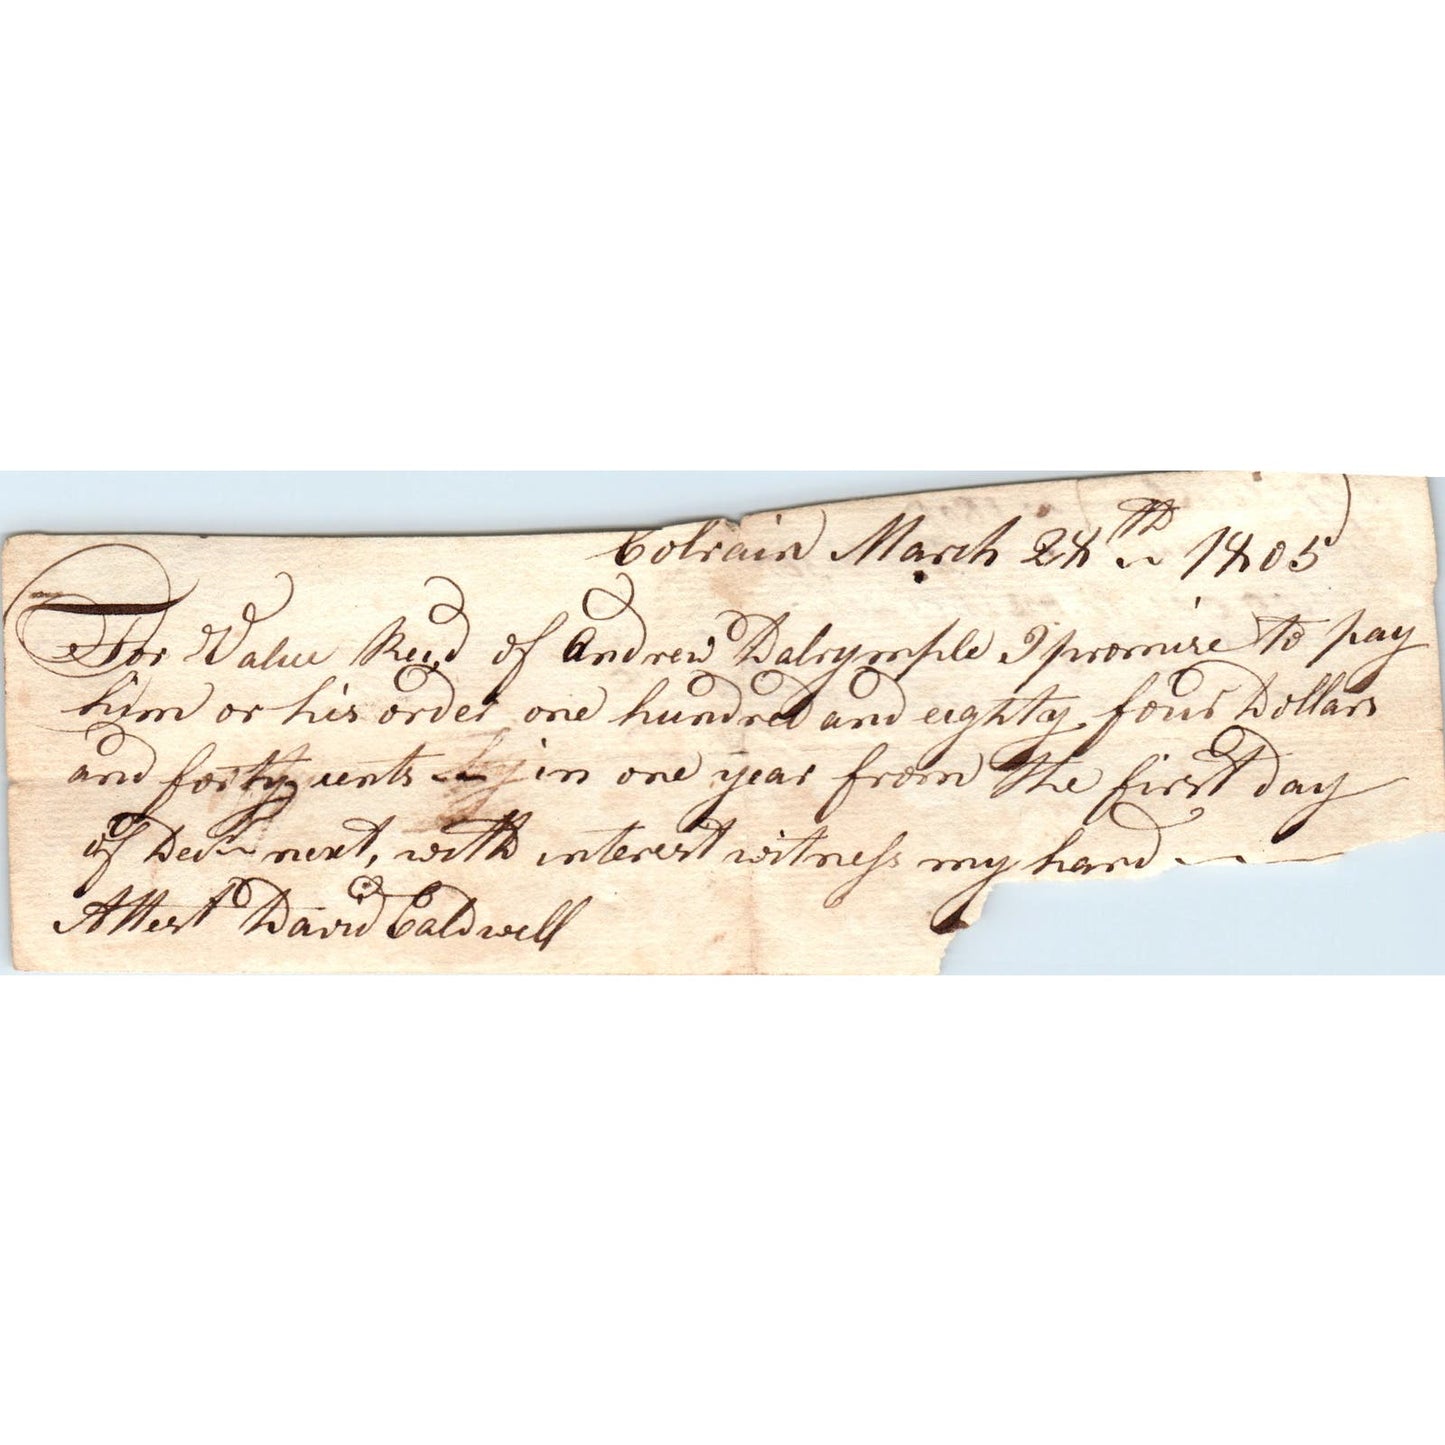 Colrain March 28th 1805
For Value Recd of Andrew Dalrymple I promise to pay
him or his order one hundred and eighty four Dollars
and forty cents in one year from the first day
of Decr next, with interest witness my hand
Attest David Caldwell